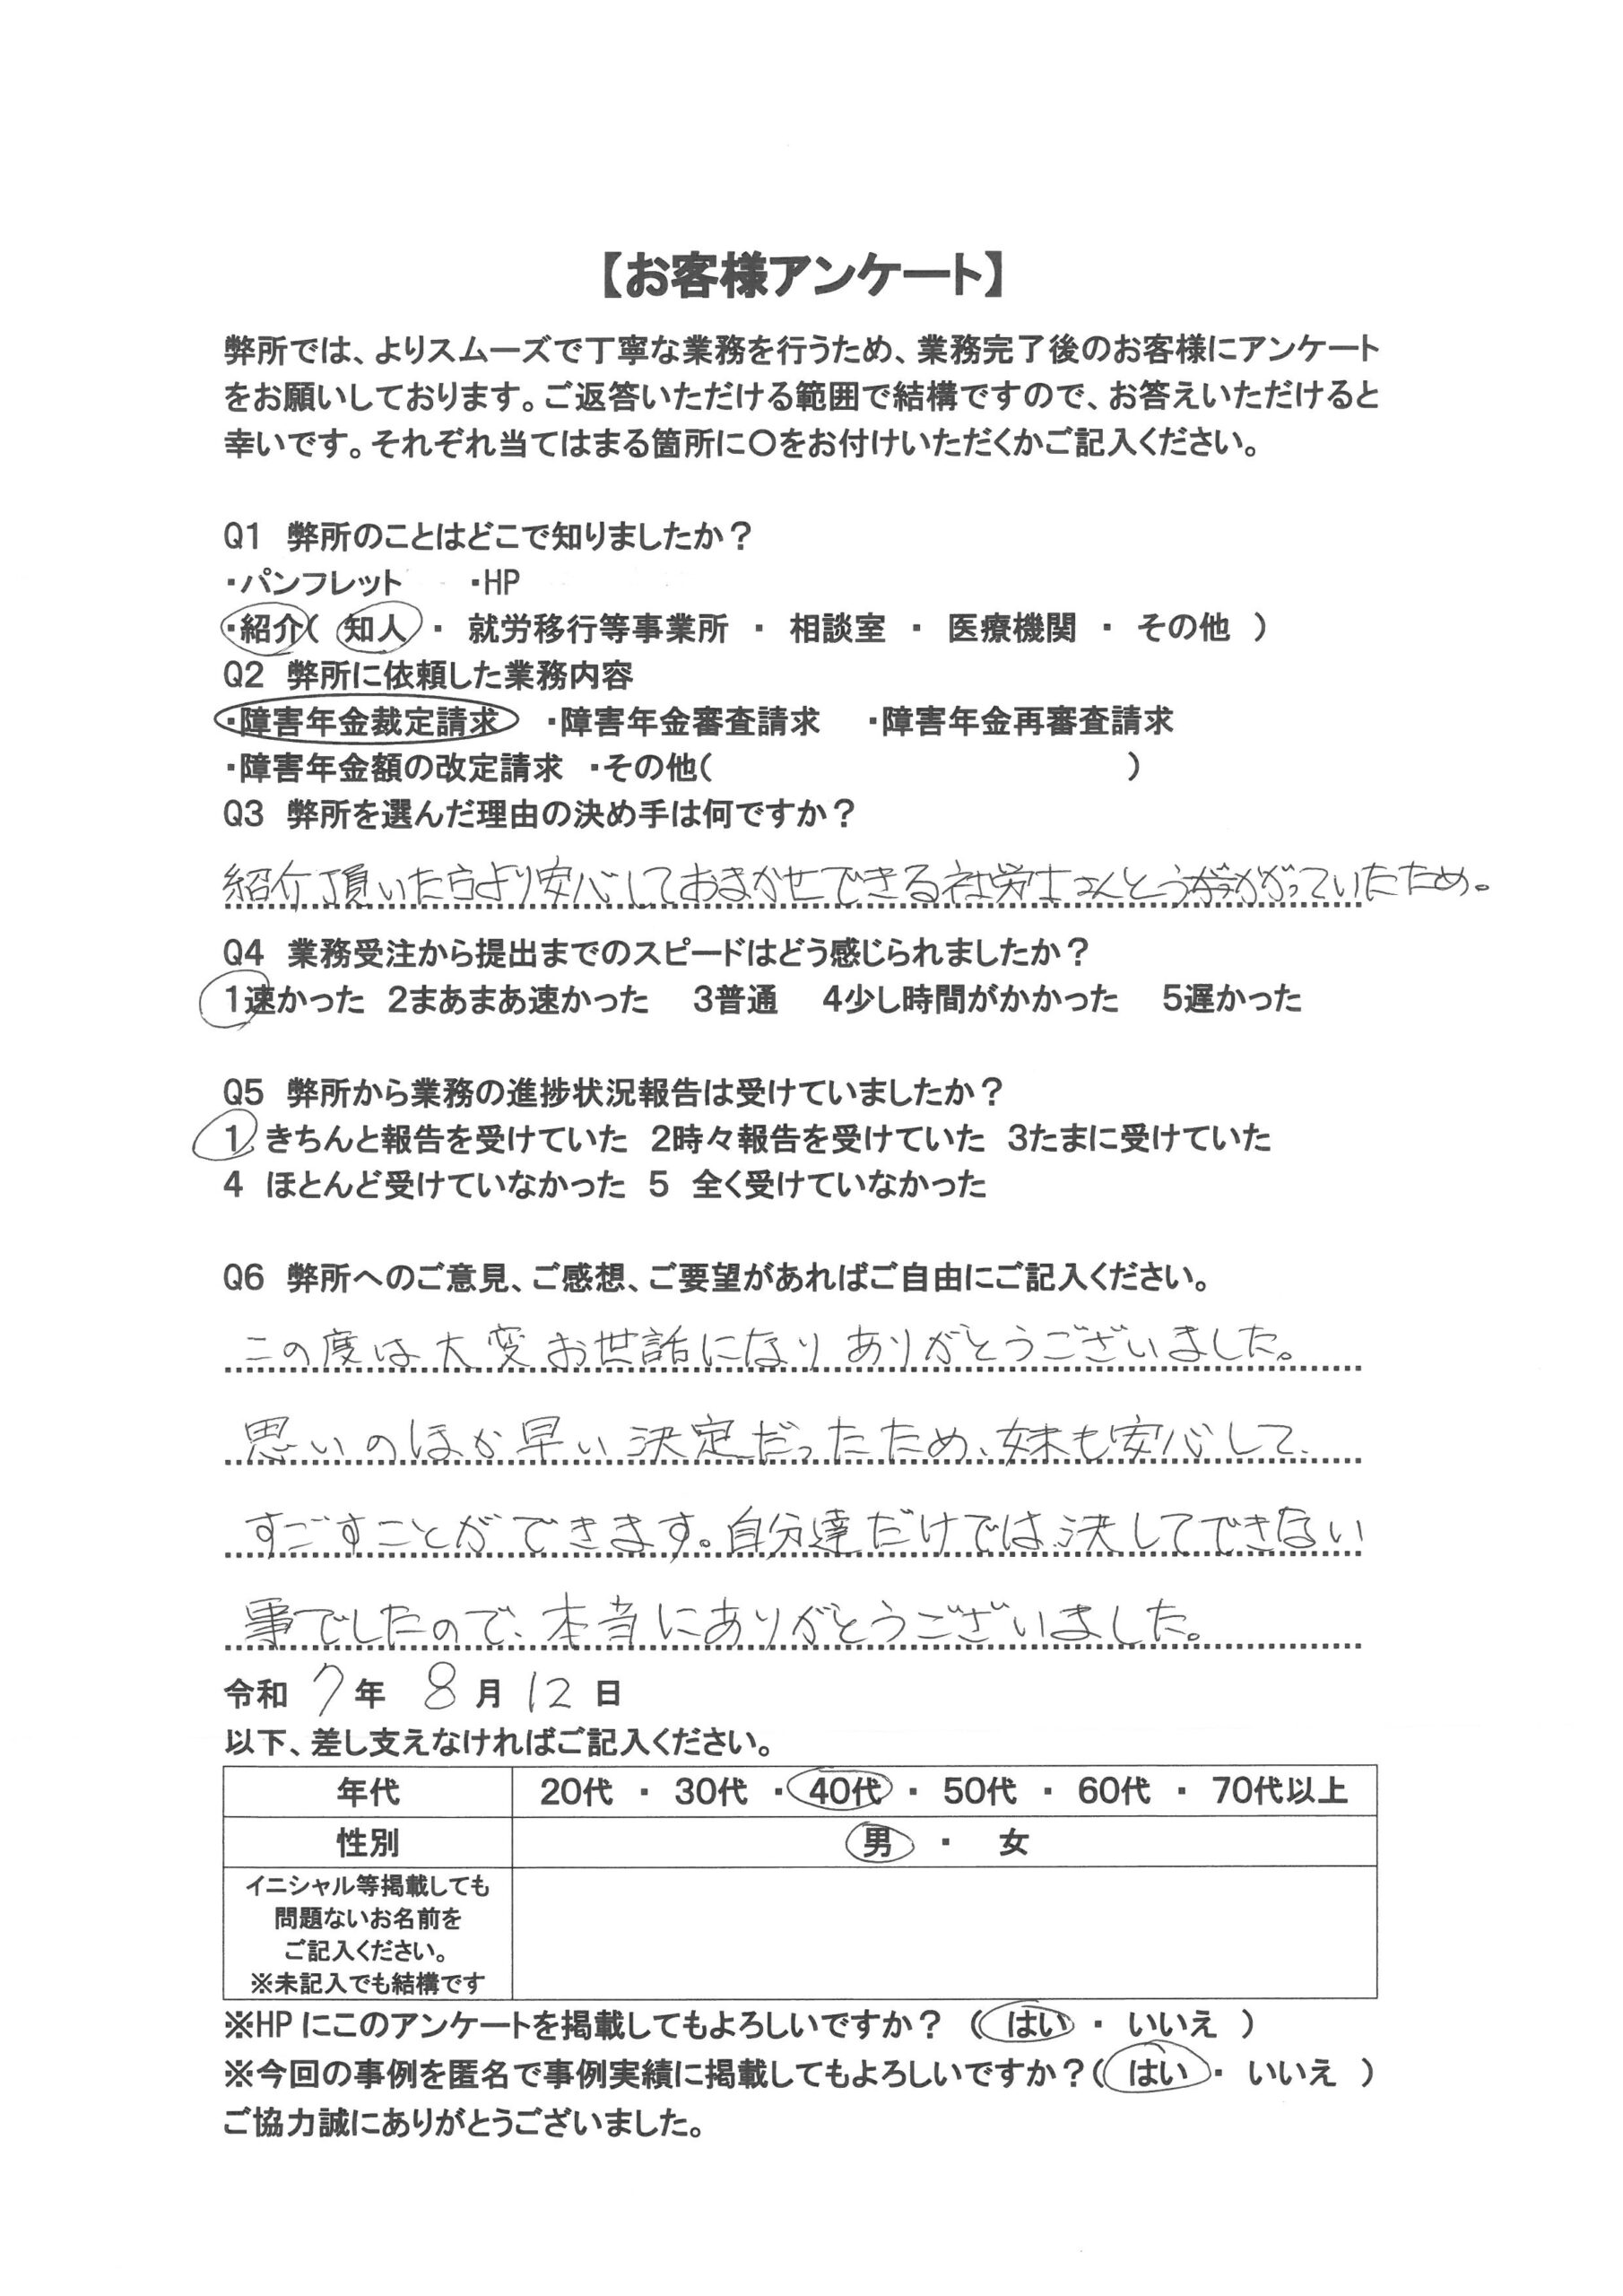 【お客様アンケート】
弊所では、よりスムーズで丁寧な業務を行うため、業務完了後のお客様にアンケート
をお願いしております。ご返答いただける範囲で結構ですので、お答えいただけると
幸いです。それぞれ当てはまる箇所に〇をお付けいただくかご記入ください。
Q1 弊所のことはどこで知りましたか？
・パンフレット ・HP
・紹介( 知人 ・ 就労移行等事業所 ・ 相談室 ・ 医療機関 ・ その他 )
Q2 弊所に依頼した業務内容
・障害年金裁定請求 ・障害年金審査請求 ・障害年金再審査請求
・障害年金額の改定請求 ・その他( )
Q3 弊所を選んだ理由の決め手は何ですか？
紹介頂いた方より安心しておまかせできる社労士さんとうかがっていたため。
Q4 業務受注から提出までのスピードはどう感じられましたか？
1速かった 2まあまあ速かった 3普通 4少し時間がかかった 5遅かった
Q5 弊所から業務の進捗状況報告は受けていましたか？
1 きちんと報告を受けていた 2時々報告を受けていた 3たまに受けていた
4 ほとんど受けていなかった 5 全く受けていなかった
Q6 弊所へのご意見、ご感想、ご要望があればご自由にご記入ください。
この度は大変お世話になりありがとうございました。
思いのほか早い決定だったため、妹も安心して、
すごすことができます。自分達だけでは決してできない
事でしたので、本当にありがとうございました。
令和 7 年 8 月 12 日
以下、差し支えなければご記入ください。
年代 20代 ・ 30代 ・ 40代 ・ 50代 ・ 60代 ・ 70代以上
性別 男 ・ 女
イニシャル等掲載しても
問題ないお名前を
ご記入ください。
※未記入でも結構です
※HPにこのアンケートを掲載してもよろしいですか？ ( はい ・ いいえ )
※今回の事例を匿名で事例実績に掲載してもよろしいですか？( はい ・ いいえ )
ご協力誠にありがとうございました。